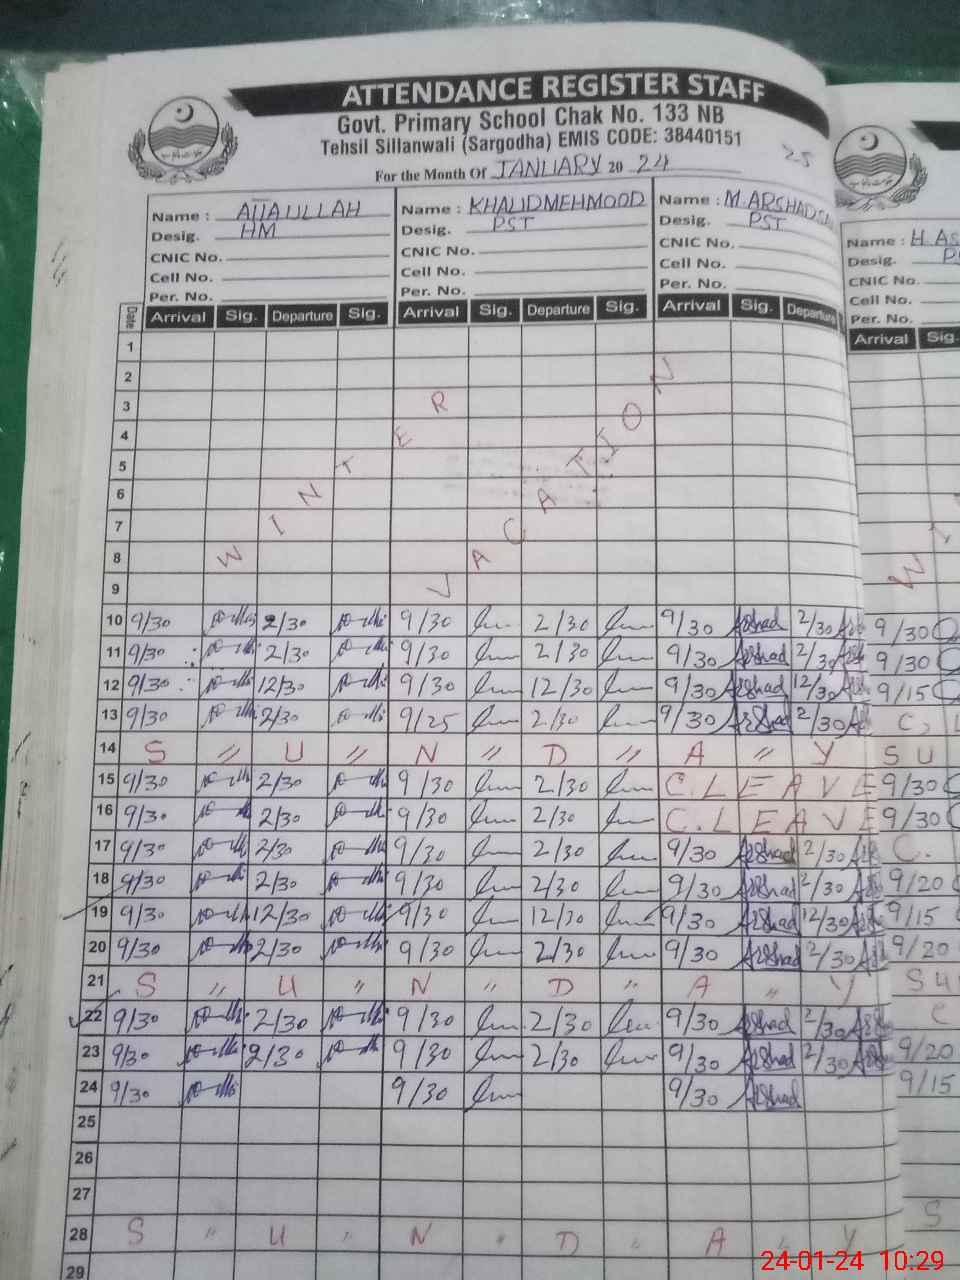 ATTENDANCE REGISTER STAFF
Govt. Primary School Chak No. 133 NB
Tehsil Sillanwali (Sargodha) EMIS CODE: 38440151
25
For the Month Of JANUARY 20 24
Name : ATTAULLAH Name : KHALID MEHMOOD Name : M. ARSHAD
Desig. HM Desig. PST Desig. PST
CNIC No. CNIC No. CNIC No.
Cell No. Cell No. Cell No.
Per. No. Per. No. Per. No.
Name : H. AS
Desig.
CNIC No.
Cell No.
Per. No.
Date Arrival Sig. Departure Sig. Arrival Sig. Departure Sig. Arrival Sig. Departure Arrival Sig.
1
2
3
4
5
6
7
8
9
WINTER VACATION
10 9/30 2/30 9/30 2/30 9/30 Arshad 2/30 9/30
11 9/30 2/30 9/30 2/30 9/30 Arshad 2/30 9/30
12 9/30 12/30 9/30 12/30 9/30 Arshad 12/30 9/15
13 9/30 2/30 9/25 2/30 9/30 Arshad 2/30 C, L
14 S " U " N " D " A " Y S U
15 9/30 2/30 9/30 2/30 C. LEAVE 9/30
16 9/30 2/30 9/30 2/30 C. LEAVE 9/30
17 9/30 2/30 9/30 2/30 9/30 Arshad 2/30 C.
18 9/30 2/30 9/30 2/30 9/30 Arshad 2/30 9/20
19 9/30 12/30 9/30 12/30 9/30 Arshad 12/30 9/15
20 9/30 2/30 9/30 2/30 9/30 Arshad 2/30 9/20
21 S " U " N " D " A " Y SU
22 9/30 2/30 9/30 2/30 9/30 Arshad 2/30 C
23 9/30 2/30 9/30 2/30 9/30 Arshad 2/30 9/20
24 9/30 9/30 9/30 Arshad 9/15
25
26
27
28 S " U " N " D " A " Y S
29
24-01-24 10:29